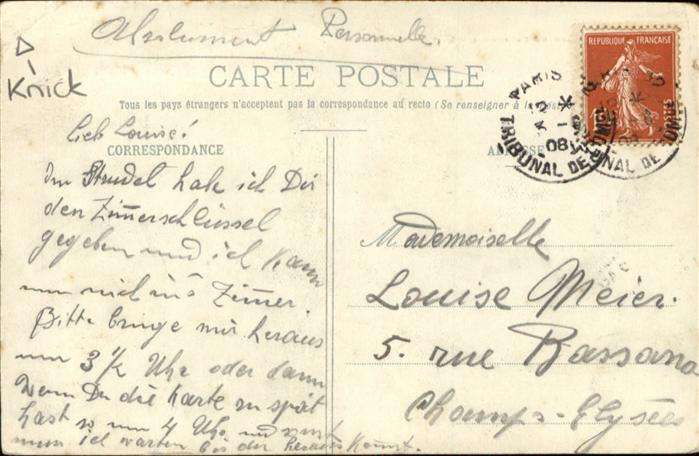 Absolument Personnelle.
Knick
CARTE POSTALE
Tous les pays étrangers n'acceptent pas la correspondance au recto (Se renseigner à la
Lieb Louise!
CORRESPONDANCE
Im Strudel hab ich Dir
den Zimerschlüssel
gegeben und ich kann
nun nich ins Zimer.
Bitte bringe mir heraus
um 3 1/2 Uhr oder dann
Wenn Du die Karte zu spät
hast so um 4 Uhr und sonst
muss ich warten bis du heraus kommst.
REPUBLIQUE FRANÇAISE
PARIS
08
TRIBUNAL DE
Mademoiselle
Louise Meier.
5. rue Bassano
Champs-Elysées